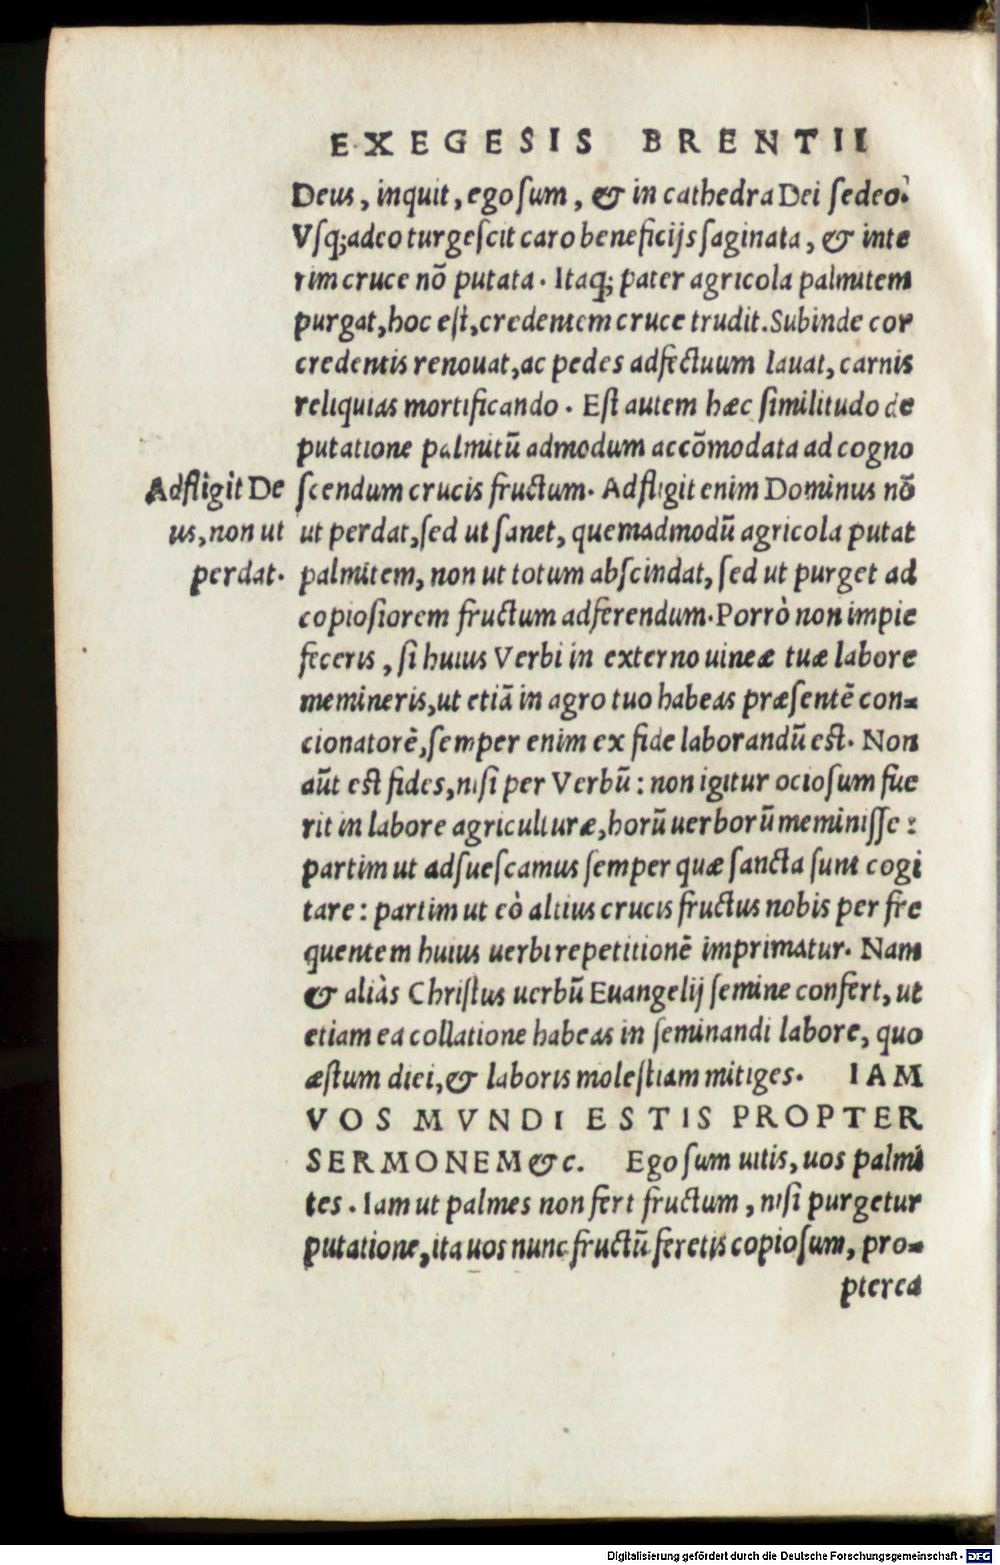 EXEGESIS BRENTII
Deus, inquit, ego ſum, & in cathedra Dei ſedeo?
Vſq;adeo turgeſcit caro beneficijs ſaginata, & inte
rim cruce nõ putata. Itaq; pater agricola palmitem
purgat, hoc eſt, credentem cruce trudit. Subinde cor
credentis renouat, ac pedes adfectuum lauat, carnis
reliquias mortificando. Eſt autem hæc ſimilitudo de
putatione palmitũ admodum accõmodata ad cogno
Adfligit De
us, non ut
perdat.
ſcendum crucis fructum. Adfligit enim Dominus nõ
ut perdat, ſed ut ſanet, quemadmodũ agricola putat
palmitem, non ut totum abſcindat, ſed ut purget ad
copioſiorem fructum adferendum. Porrò non impie
feceris, ſi huius Verbi in externo uineæ tuæ labore
memineris, ut etiã in agro tuo habeas præſentẽ con-
cionatorẽ, ſemper enim ex fide laborandũ eſt. Non
aũt eſt fides, niſi per Verbũ: non igitur ocioſum fue
rit in labore agriculturæ, horũ uerborũ meminiſſe:
partim ut adſueſcamus ſemper quæ ſancta ſunt cogi
tare: partim ut eò altius crucis fructus nobis per fre
quentem huius uerbi repetitionẽ imprimatur. Nam
& aliàs Chriſtus uerbũ Euangelij ſemine confert, ut
etiam ea collatione habeas in ſeminandi labore, quo
æſtum diei, & laboris moleſtiam mitiges. IAM
VOS MVNDI ESTIS PROPTER
SERMONEM &c. Ego ſum uitis, uos palmi
tes. Iam ut palmes non fert fructum, niſi purgetur
putatione, ita uos nunc fructũ feretis copioſum, pro-
pterea
Digitalisierung gefördert durch die Deutsche Forschungsgemeinschaft - DFG